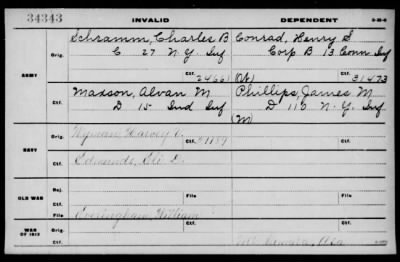 34343 INVALID DEPENDENT
Schramm, Charles B Conrad, Henry S
Orig. C 27 N.Y. Inf Corp B 13 Conn Inf
ARMY
Ctf. 24661 (W) 31473
Maxson, Alvan M Phillips, James M
Orig. D 15 Ind Inf D 110 N.Y. Inf
Ctf. (M)
Nyman, Harvey
Orig. 21189
NAVY Edmunds, Eli D.
Ctf.
Rej.
OLD WAR
Ctf. Everingham, William
Orig.
WAR OF 1812
Ctf. Asa